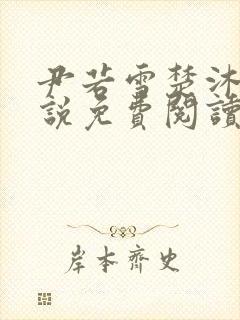 尹若雪楚沐
說免費閱讀
岸本齊史